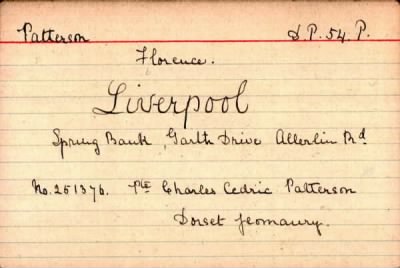 Patterson D.P. 54. P.
Florence.
Liverpool
Spring Bank, Garth Drive Allerlin Rd
No. 251376. Pte Charles Cedric Patterson
Dorset Yeomanry.